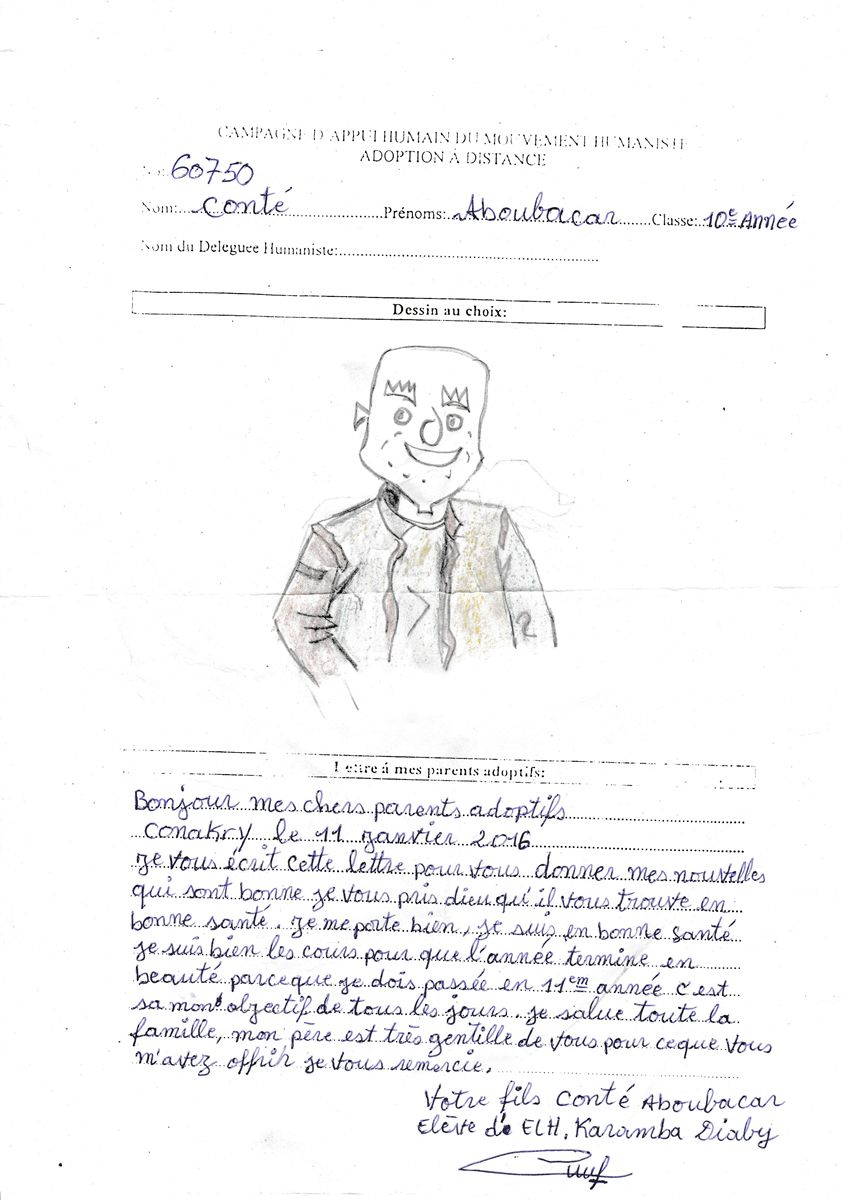 CAMPAGNE D'APPUI HUMAIN DU MOUVEMENT HUMANISTE
ADOPTION À DISTANCE
No: 60750
Nom: Conté Prénoms: Aboubacar Classe: 10e Année
Nom du Deleguee Humaniste:
Dessin au choix:
Lettre á mes parents adoptifs:
Bonjour mes chers parents adoptifs
Conakry le 11 janvier 2016
je vous écrit cette lettre pour vous donner mes nouvelles
qui sont bonne je vous pris dieu qu'il vous trouve en
bonne santé. je me porte bien, je suis en bonne santé
je suis bien les cours pour que l'année termine en
beauté parceque je dois passée en 11em année c'est
sa mon objectif de tous les jours. je salue toute la
famille, mon père est très gentille de vous pour ceque vous
m'avez offrir je vous remercie.
Votre fils Conté Aboubacar
Elève de ELH. Karamba Diaby